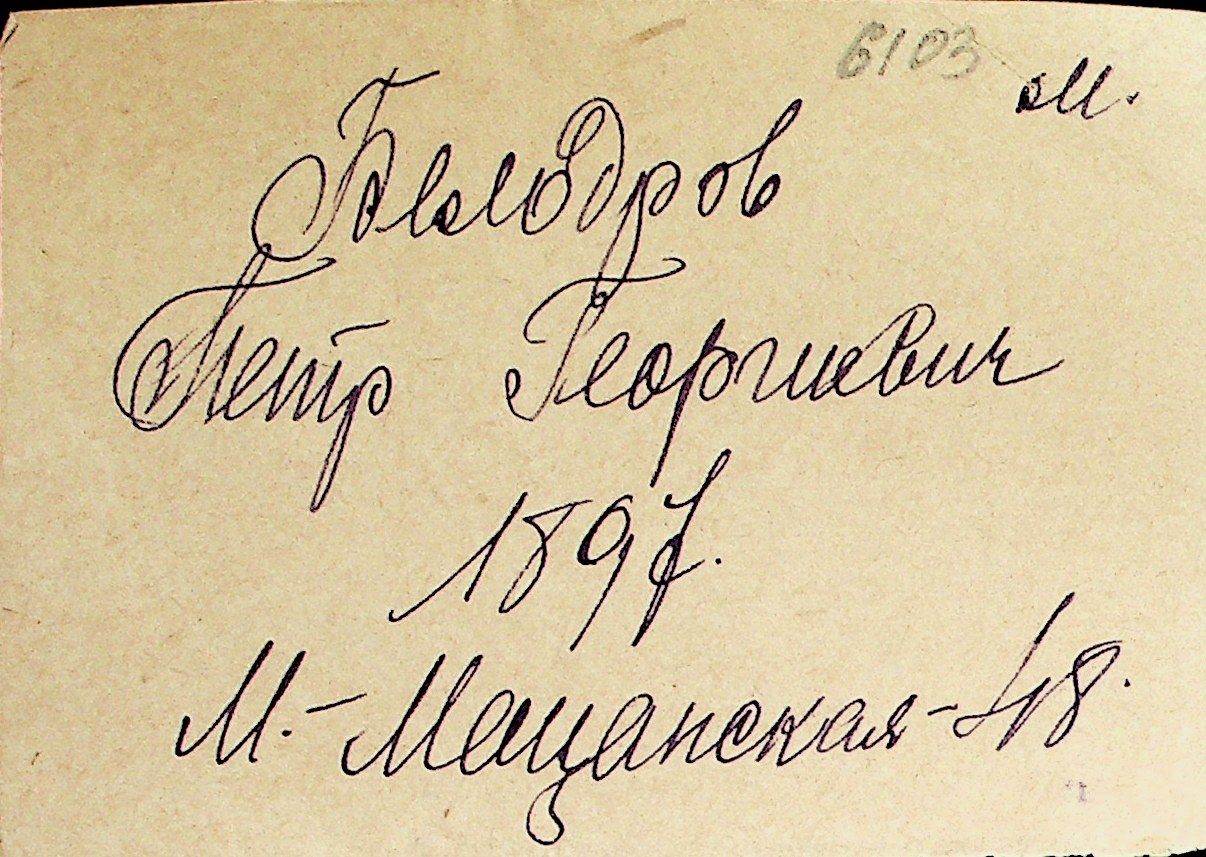 6103
м.
Петр Георгиевич
1897.
М.-Мещанская-48.